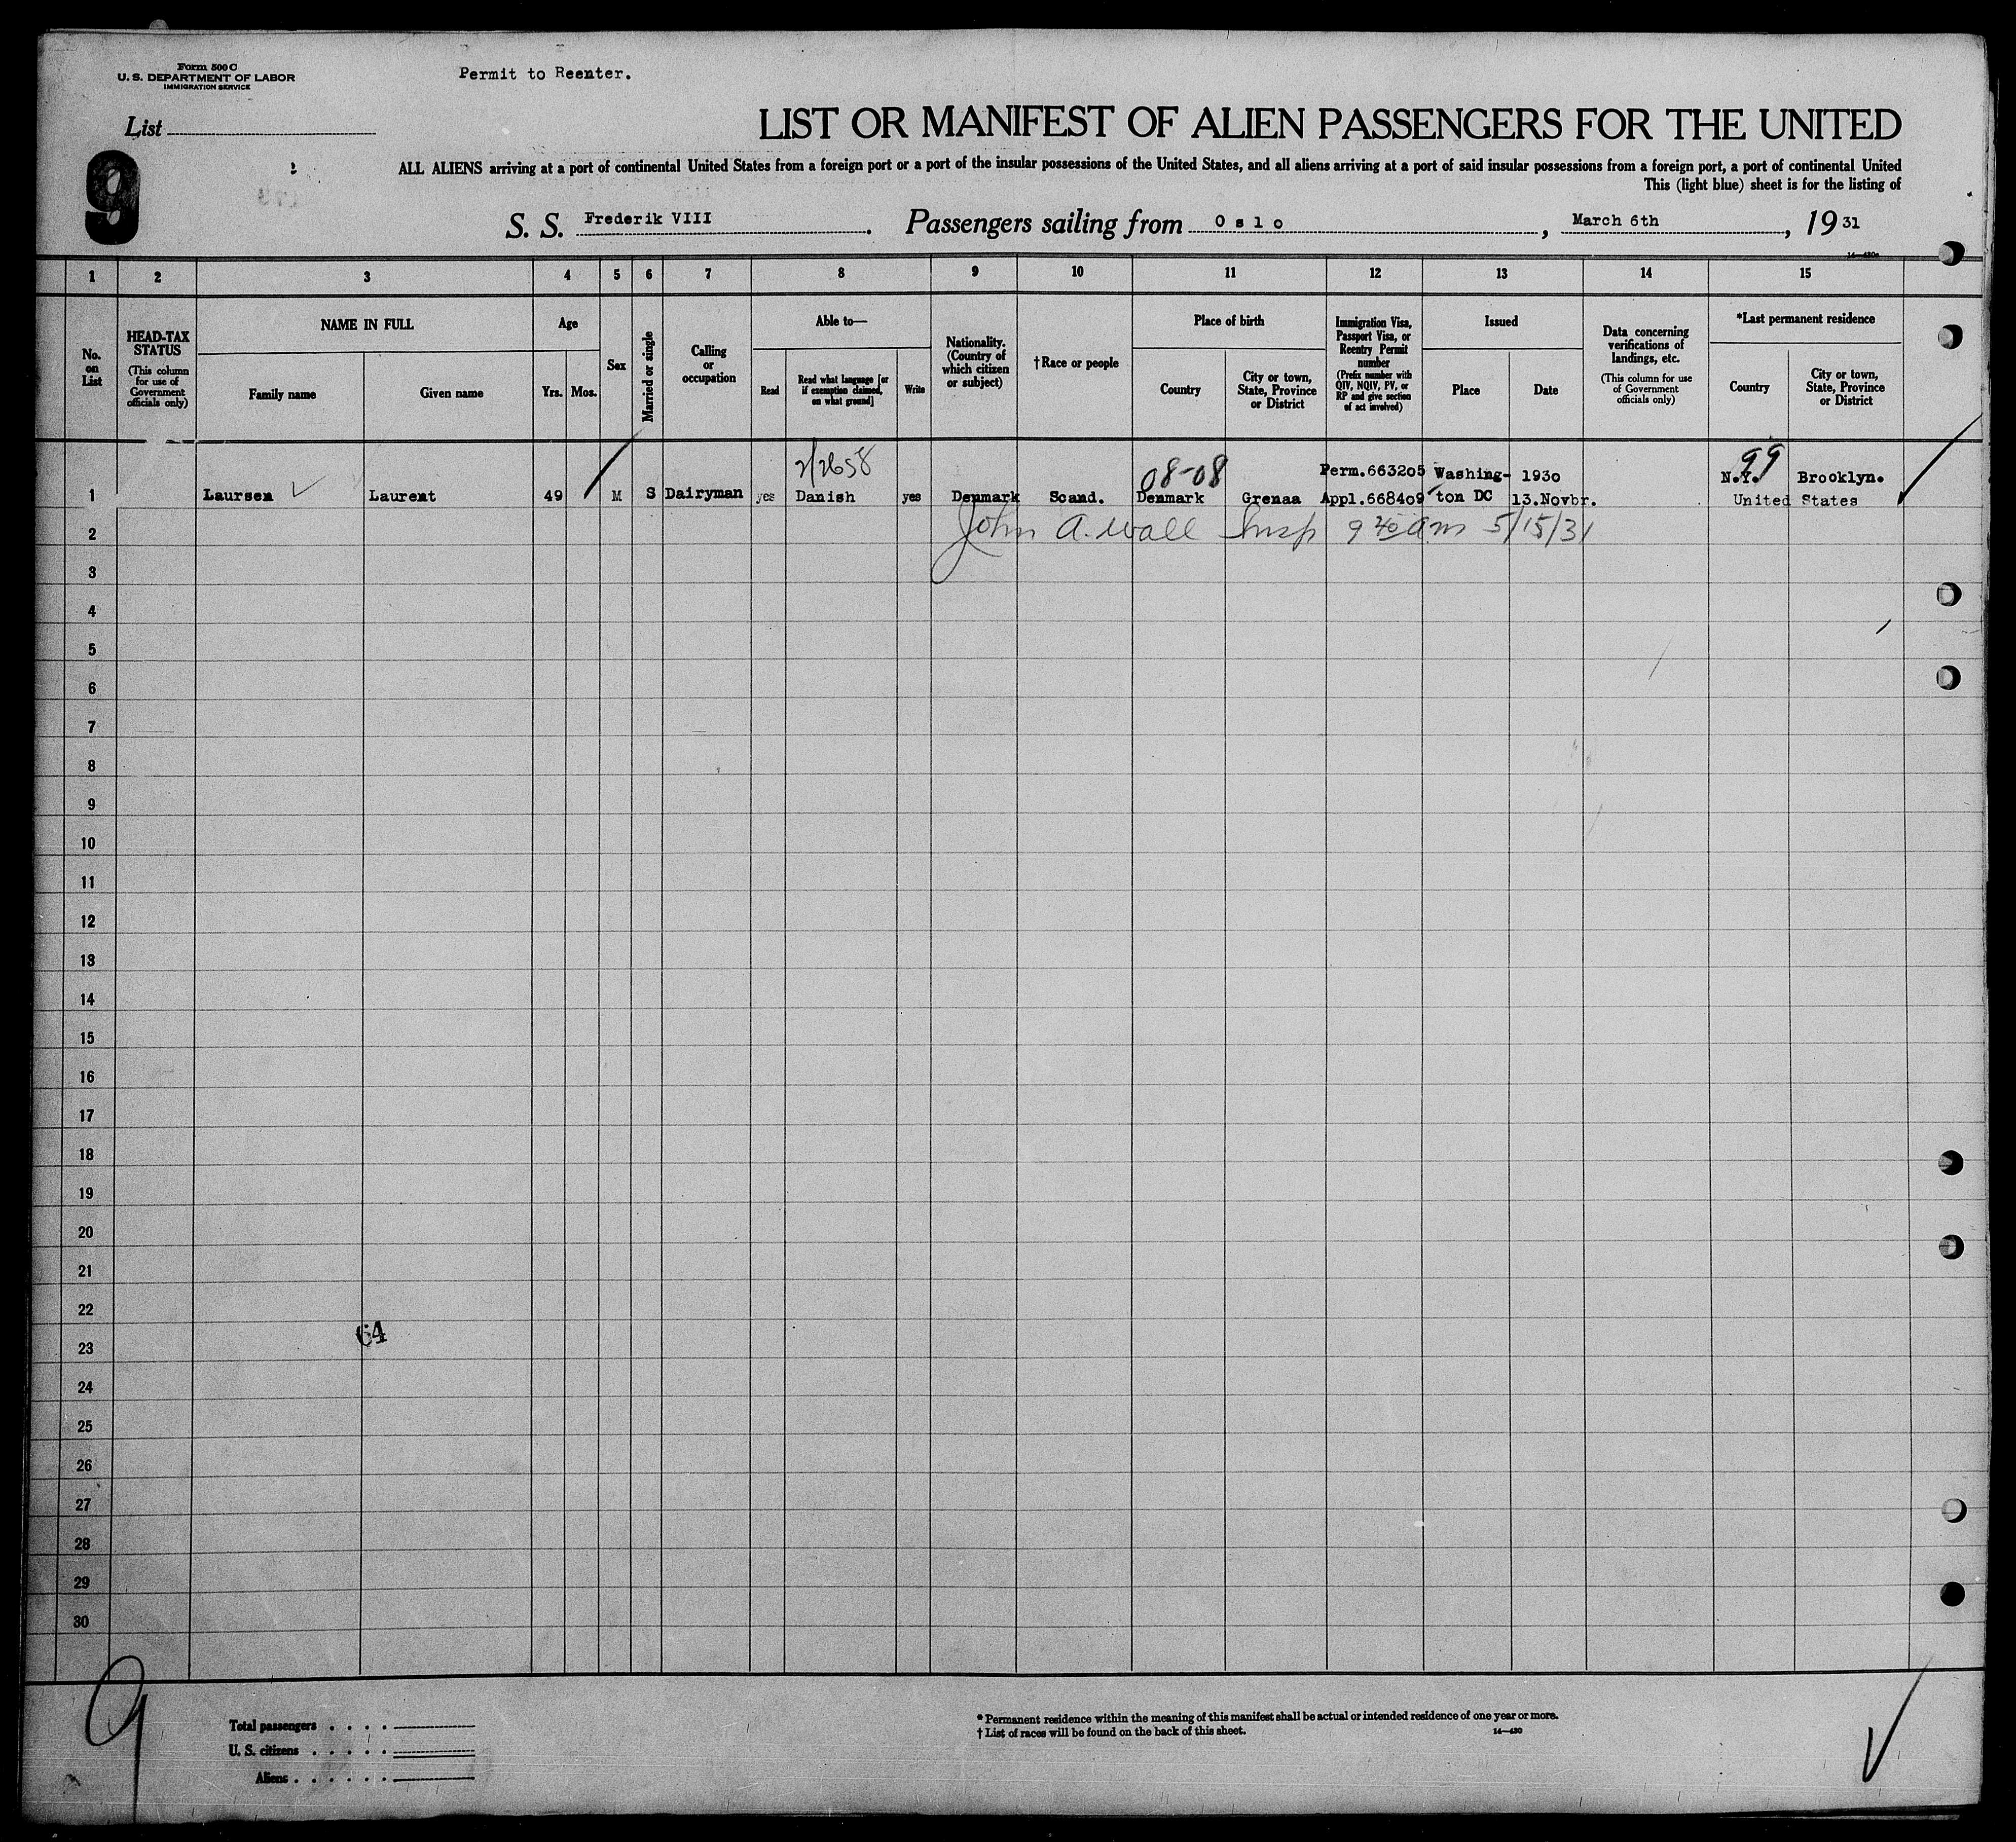 Form 500 C
U. S. DEPARTMENT OF LABOR
IMMIGRATION SERVICE
Permit to Reenter.
List
LIST OR MANIFEST OF ALIEN PASSENGERS FOR THE UNITED
9
ALL ALIENS arriving at a port of continental United States from a foreign port or a port of the insular possessions of the United States, and all aliens arriving at a port of said insular possessions from a foreign port, a port of continental United
This (light blue) sheet is for the listing of
S. S. Frederik VIII. Passengers sailing from Oslo, March 6th, 1931
14—430a
1 2 3 4 5 6 7 8 9 10 11 12 13 14 15
No. on List
HEAD-TAX STATUS
(This column for use of Government officials only)
NAME IN FULL
Family name
Given name
Age
Yrs.
Mos.
Sex
Married or single
Calling or occupation
Able to—
Read
Read what language [or if exemption claimed, on what ground]
Write
Nationality. (Country of which citizen or subject)
†Race or people
Place of birth
Country
City or town, State, Province or District
Immigration Visa, Passport Visa, or Reentry Permit number
(Prefix number with QIV, NQIV, PV, or RP and give section of act involved)
Issued
Place
Date
Data concerning verifications of landings, etc.
(This column for use of Government officials only)
*Last permanent residence
Country
City or town, State, Province or District
2/2658 08-08 99
Perm.663205 Washing- 1930 N.Y. Brooklyn.
1 Laursen Laurent 49 M S Dairyman yes Danish yes Denmark Scand. Denmark Grenaa Appl.668409 ton DC 13.Novbr. United States
2 John A. Wall Insp 9 40 am 5/15/31
3
4
5
6
7
8
9
10
11
12
13
14
15
16
17
18
19
20
21
22
64
23
24
25
26
27
28
29
30
9
Total passengers
U. S. citizens
Aliens
* Permanent residence within the meaning of this manifest shall be actual or intended residence of one year or more.
† List of races will be found on the back of this sheet. 14—430